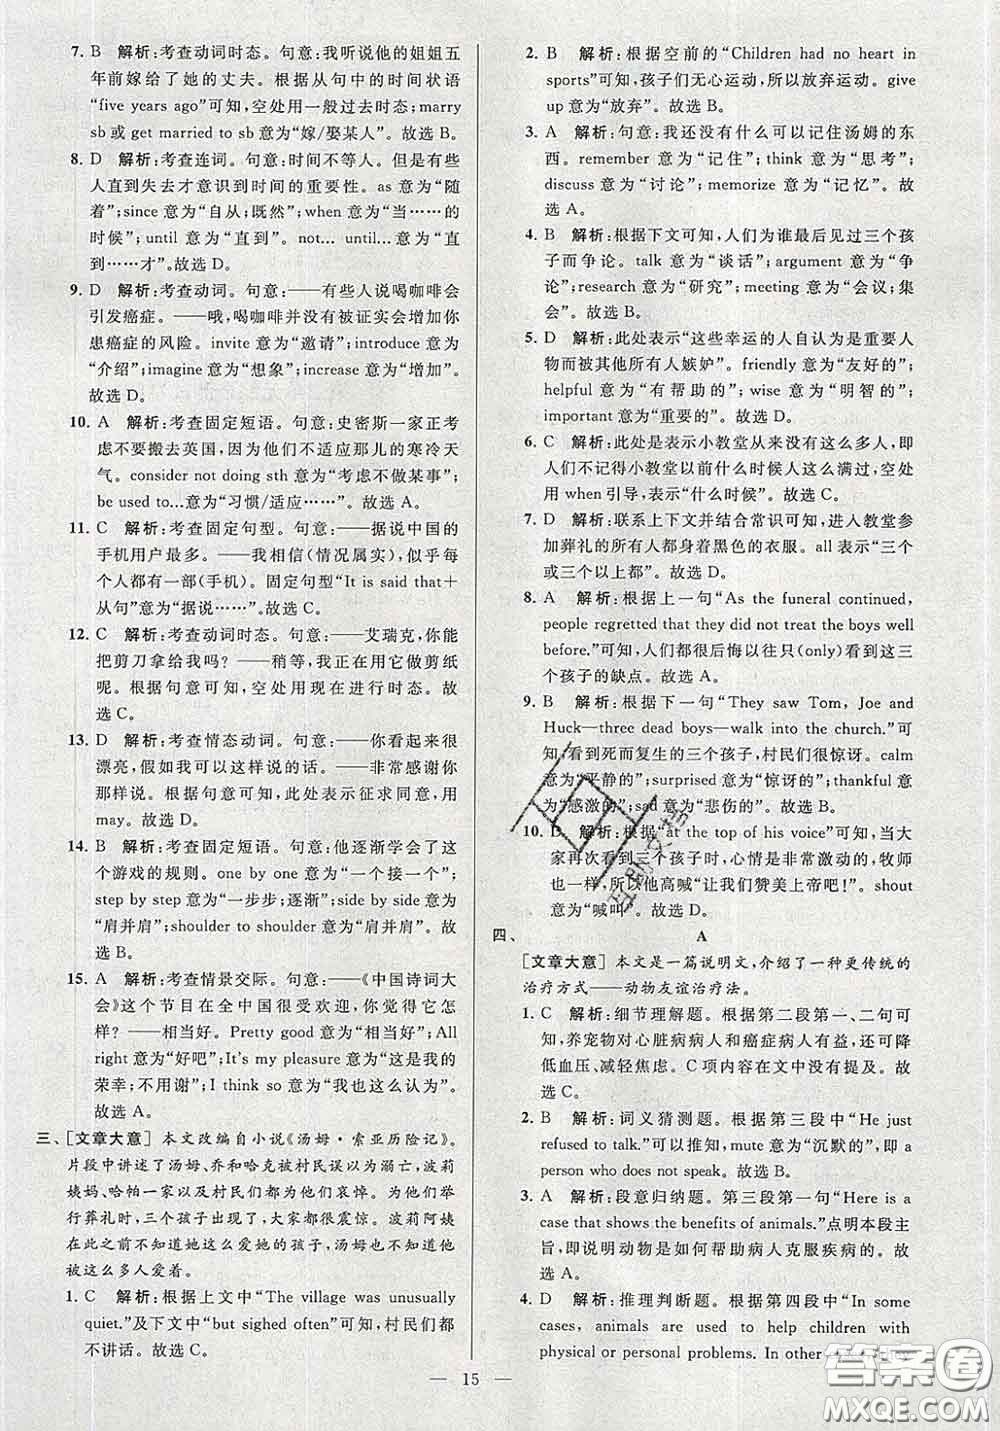 7. B 解析:考查动词时态。句意:我听说他的姐姐五
年前嫁给了她的丈夫。根据从句中的时间状语
“five years ago”可知,空处用一般过去时态;marry
sb或 get married to sb意为“嫁/娶某人”。故选 B。
8. D 解析:考查连词。句意:时间不等人。但是有些
人直到失去才意识到时间的重要性。as意为“随
着”;since意为“自从;既然”;when意为“当……的
时候”;until意为“直到”。not… until…意为“直
到……才”。故选 D。
9. D 解析:考查动词。句意:——有些人说喝咖啡会
引发癌症。——哦,喝咖啡并没有被证实会增加你
患癌症的风险。invite意为“邀请”;introduce意为
“介绍”;imagine意为“想象”;increase意为“增加”。
故选 D。
10. A 解析:考查固定短语。句意:史密斯一家正考
虑不要搬去英国,因为他们不适应那儿的寒冷天
气。consider not doing sth意为“考虑不做某事”;
be used to…意为“习惯/适应……”。故选 A。
11. C 解析:考查固定句型。句意:——据说中国的
手机用户最多。——我相信(情况属实),似乎每
个人都有一部(手机)。固定句型“It is said that+
从句”意为“据说……”。故选 C。
12. C 解析:考查动词时态。句意:——艾瑞克,你能
把剪刀拿给我吗?——稍等,我正在用它做剪纸
呢。根据句意可知,空处用现在进行时态。故
选 C。
13. D 解析:考查情态动词。句意:——你看起来很
漂亮,假如我可以这样说的话。——非常感谢你
那样说。根据句意可知,此处表示征求同意,用
may。故选 D。
14. B 解析:考查固定短语。句意:他逐渐学会了这
个游戏的规则。one by one意为“一个接一个”;
step by step意为“一步步;逐渐”;side by side意为
“肩并肩”;shoulder to shoulder意为“肩并肩”。故
选 B。
15. A 解析:考查情景交际。句意:——《中国诗词大
会》这个节目在全中国很受欢迎,你觉得它怎么
样?——相当好。Pretty good意为“相当好”;All
right意为“好吧”;It's my pleasure意为“这是我的
荣幸;不用谢”;I think so意为“我也这么认为”。
故选 A。
三、[文章大意] 本文改编自小说《汤姆·索亚历险记》。
片段中讲述了汤姆、乔和哈克被村民误以为溺亡,波莉
姨妈、哈帕一家以及村民们都为他们哀悼。待到为他们
举行葬礼时,三个孩子出现了,大家都很震惊。波莉阿姨
在此之前不知道她这么爱她的孩子,汤姆也不知道他
被这么多人爱着。
1. C 解析:根据上文中“The village was unusually
quiet.”及下文中“but sighed often”可知,村民们都
不讲话。故选 C。
2. B 解析:根据空前的“Children had no heart in
sports”可知,孩子们无心运动,所以放弃运动。give
up意为“放弃”。故选 B。
3. A 解析:句意:我还没有什么可以记住汤姆的东
西。remember意为“记住”;think意为“思考”;
discuss意为“讨论”;memorize意为“记忆”。故
选 A。
4. B 解析:根据下文可知,人们为谁最后见过三个孩
子而争论。talk意为“谈话”;argument意为“争
论”;research意为“研究”;meeting意为“会议;集
会”。故选 B。
5. D 解析:此处表示“这些幸运的人自认为是重要人
物而被其他所有人嫉妒”。friendly意为“友好的”;
helpful意为“有帮助的”;wise意为“明智的”;
important意为“重要的”。故选 D。
6. C 解析:此处是表示小教堂从来没有这么多人,即
人们不记得小教堂以前什么时候人这么满过,空处
用when引导,表示“什么时候”。故选 C。
7. D 解析:联系上下文并结合常识可知,进入教堂参
加葬礼的所有人都身着黑色的衣服。all表示“三个
或三个以上都”。故选 D。
8. A 解析:根据上一句“As the funeral continued,
people regretted that they did not treat the boys well
before.”可知,人们都很后悔以往只(only)看到这三
个孩子的缺点。故选 A。
9. B 解析:根据下一句“They saw Tom, Joe and
Huck—three dead boys—walk into the church.”可
知,看到死而复生的三个孩子,村民们很惊讶。calm
意为“平静的”;surprised意为“惊讶的”;thankful意
为“感激的”;sad意为“悲伤的”。故选 B。
10. D 解析:根据“at the top of his voice”可知,当大
家再次看到三个孩子时,心情是非常激动的,牧师
也一样,所以他高喊“让我们赞美上帝吧!”。shout
意为“喊叫”。故选 D。
四、 A
[文章大意] 本文是一篇说明文,介绍了一种更传统的
治疗方式——动物友谊治疗法。
1. C 解析:细节理解题。根据第二段第一、二句可
知,养宠物对心脏病病人和癌症病人有益,还可降
低血压、减轻焦虑。C项内容在文中没有提及。故
选 C。
2. B 解析:词义猜测题。根据第三段中“He just
refused to talk.”可以推知,mute意为“沉默的”,即 a
person who does not speak。故选 B。
3. A 解析:段意归纳题。第三段第一句“Here is a
case that shows the benefits of animals.”点明本段主
旨,即说明动物是如何帮助病人克服疾病的。故
选 A。
4. D 解析:推理判断题。根据第四段中“In some
cases, animals are used to help children with
physical or personal problems. In other
— 15 —
答案圈
MXQE.COM